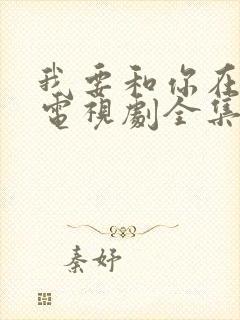 我要和你在
電視劇全集
秦妤